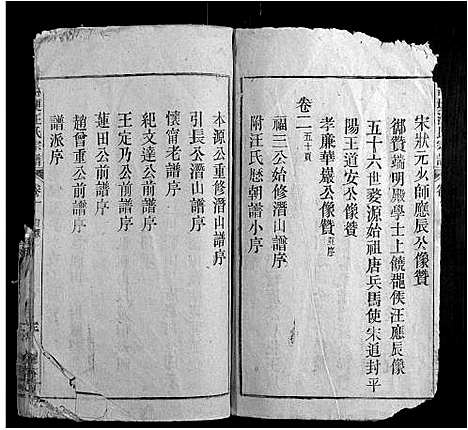 宋狀元少師應辰公像贊
御贊端明殿學士上饒郡侯汪應辰像
五十六世婺源始祖唐兵馬使宋追封平
陽王道安公像贊
孝廉華巖公像贊
卷二 五十頁
福三公始修潛山譜序
附汪氏歷朝譜小序
本源公重修潛山譜序
引長公潛山譜序
懷甯老譜序
紀文達公前譜序
王定乃公前譜序
蓮田公前譜序
趙曾重公前譜序
譜派序
汪氏宗譜